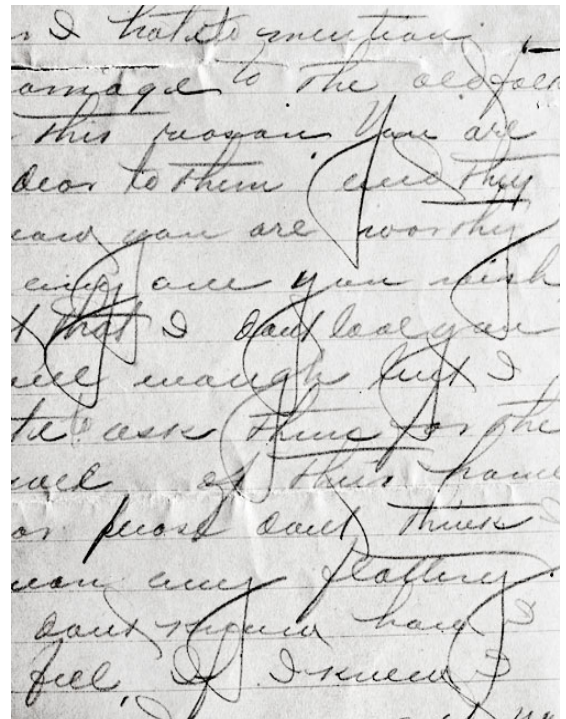 I hate to mention
to the old folk
this reason You are
dear to them and they
you are worthy
any one you wish
that I dont love you
enough but I
ask them for the
of this
pleas dont think
any flattery
dont know how I
feel, If I knew I